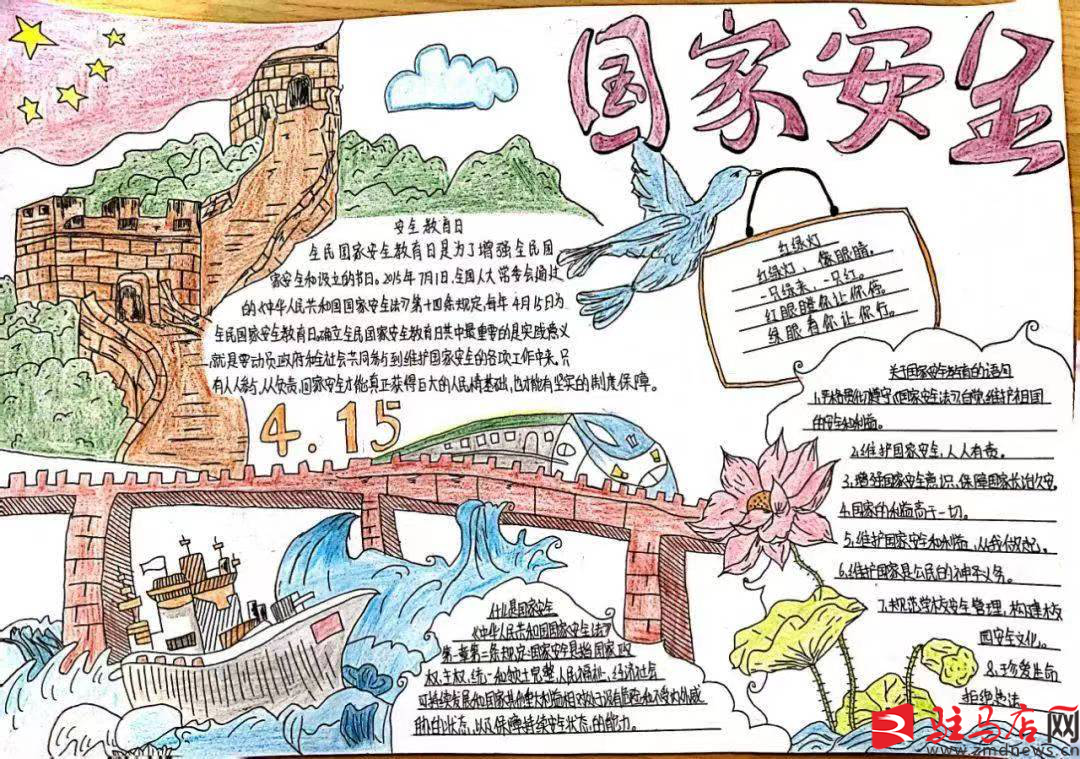 国家安全
安全教育日
全民国家安全教育日是为了增强全民国
家安全和设立的节日。2015年7月1日,全国人大常委会通过
的《中华人民共和国国家安全法》第十四条规定,每年4月15日为
全民国家安全教育日。确立全民国家安全教育日其中最重要的是实践意义
就是要动员政府和全社会共同参与到维护国家安全的各项工作中来,只
有人人参与,人人负责,国家安全才能真正获得巨大的人民情基础,也才能有坚实的制度保障。
4.15
红绿灯
红绿灯,像眼睛。
一只绿来,一只红。
红眼瞪你让你停。
绿眼看你让你行。
关于国家安全教育的语句
1.严格贯彻遵守《国家安全法》,自觉维护祖国
的安全和利益。
2.维护国家安全,人人有责。
3.增强国家安全意识,保障国家长治久安。
4.国家的利益高于一切。
5.维护国家安全和利益,从我做起。
6.维护国家是公民的神圣义务。
7.规范学校安全管理,构建校
园安全文化。
8.珍爱生命
拒绝违法
什么是国家安全
《中华人民共和国国家安全法》
第一章第二条规定:国家安全是指国家政
权、主权、统一和领土完整、人民福祉、经济社会
可持续发展和国家其他重大利益相对处于没有危险和不受内外威
胁的状态,以及保障持续安全状态的能力。
驻马店网
www.zmdnews.cn